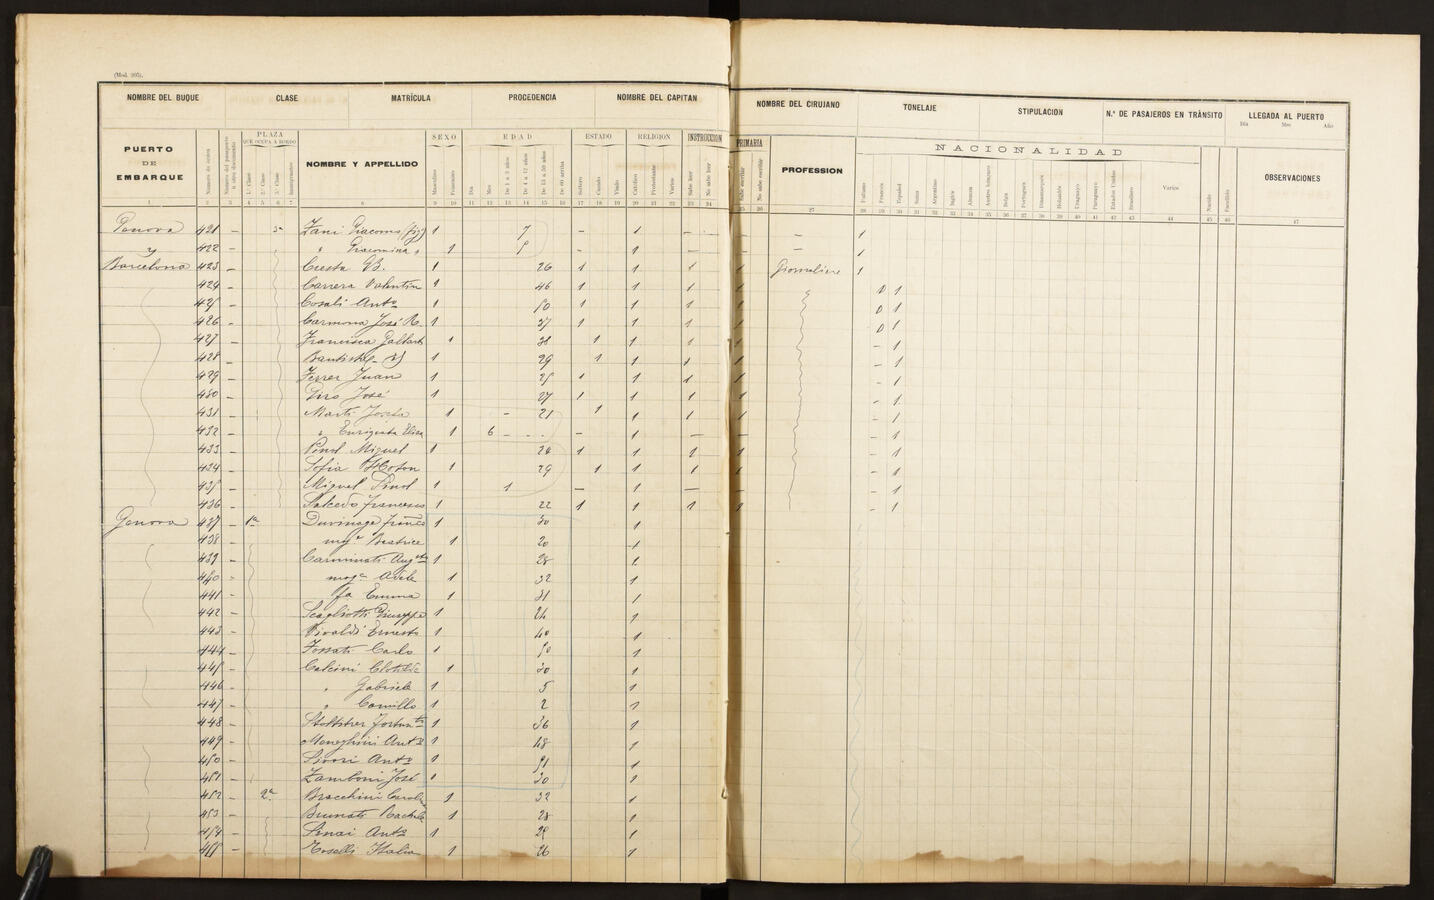 (Mod. 205).
NOMBRE DEL BUQUE CLASE MATRÍCULA PROCEDENCIA NOMBRE DEL CAPITAN NOMBRE DEL CIRUJANO TONELAJE STIPULACION N.º DE PASAJEROS EN TRÁNSITO LLEGADA AL PUERTO
Dia Mes Año
PUERTO DE EMBARQUE
Número de orden
PLAZA QUE OCUPA A BORDO
1ª Clase 2ª Clase 3ª Clase Inmigrantes
NOMBRE Y APPELLIDO
SEXO
Masculino Femenino
EDAD
Dia Mes De 1 a 3 años De 4 a 12 años De 13 a 59 años De 60 arriba
ESTADO
Soltero Casado Viudo
RELIGION
Católico Protestante Varios
INSTRUCCION PRIMARIA
Sabe leer No sabe leer Sabe escribir No sabe escribir
PROFESSION
NACIONALIDAD
Italiano Frances Español Suiza Argentino Inglés Aleman Austro húngaro Belga Portugués Dinamarqués Holandés Uruguayo Paraguayo Estados Unidos Brasilero Varios
OBSERVACIONES
Genova 421 - 3ª Zani Giacomo (fijo) 1 7 - 1 - - - 1
y 422 - " Giacomina " 1 - 1 - - 1
Barcelona 423 - Cuesta G.B. 1 26 1 1 1 1 Giornaliere 1
424 - Carrera Valentin 1 46 1 1 1 1 0 1
425 - Cosali Antº 1 50 1 1 1 1 0 1
426 - Carmona José R. 1 37 1 1 1 1 0 1
427 - Francisca 1 38 1 1 1 1 - 1
428 - 1 29 1 1 1 1 - 1
429 - Ferrer Juan 1 25 1 1 1 1 - 1
430 - José 1 27 1 1 1 1 - 1
431 - Marti Josefa 1 - 21 1 1 1 1 - 1
432 - " Enriqueta Elisa 1 6 - - 1 - - - 1
433 - Pinol Miguel 1 24 1 1 1 1 - 1
434 - Sofia 1 29 1 1 1 1 - 1
435 - Miguel Pinol 1 1 - 1 - - - 1
436 - Salcedo Francesco 1 22 1 1 1 1 - 1
Genova 437 - 1ª Duvinage Franco 1 30 1
438 - mog.e Beatrice 1 20 1
439 - Carminati Augto 1 28 1
440 - mog.e Adele 1 32 1
441 - fa Emma 1 31 1
442 - Scagliotti Giuseppe 1 24 1
443 - Rivaldi Ernesto 1 40 1
444 - Fossati Carlo 1 50 1
445 - Calcini Clotilde 1 30 1
446 - " Gabriele 1 5 1
447 - " Camillo 1 2 1
448 - 1 36 1
449 - Meneghini Antº 1 48 1
450 - Sivori Antº 1 51 1
451 - Zamboni José 1 30 1
452 - 2ª Bracchini 1 32 1
453 - Brunati Rachele 1 28 1
454 - Antº 1 29 1
455 - Roselli Italia 1 26 1